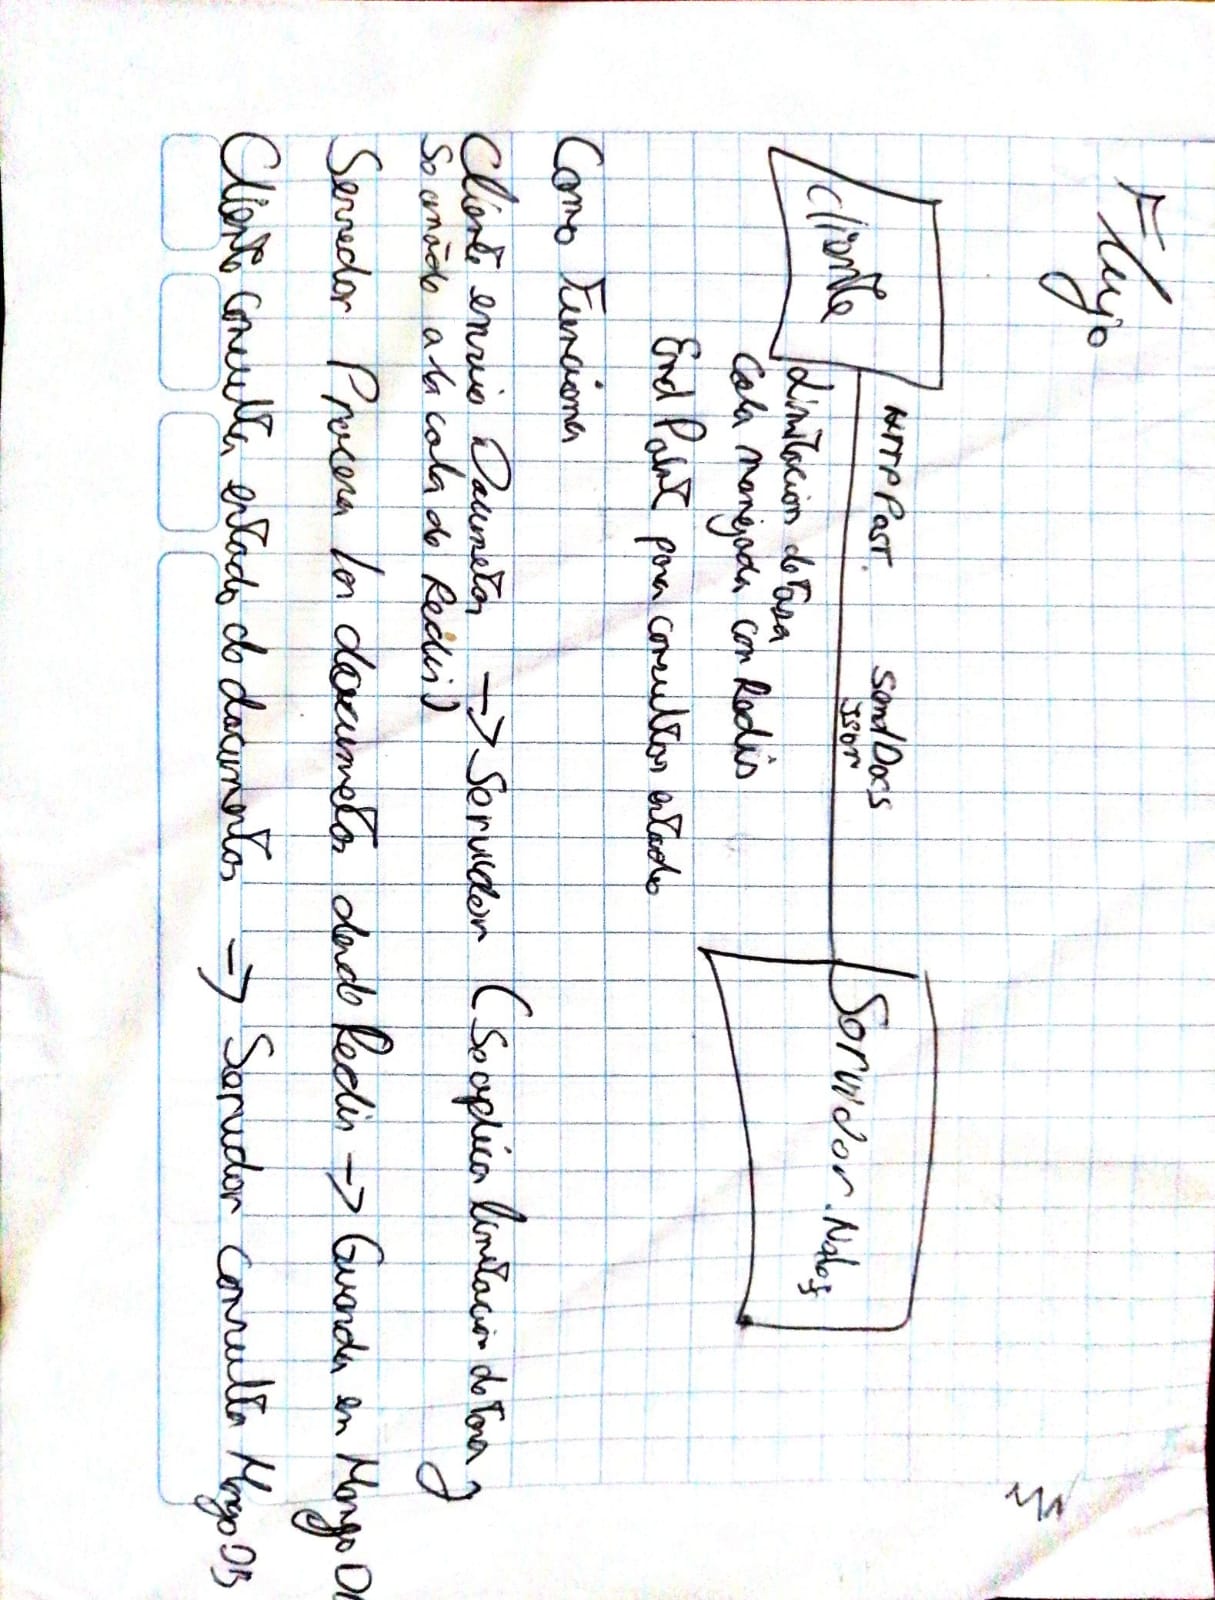 Flujo
Cliente
HTTP Post
Send Docs
Json
Servidor. Nodejs
Limitacion de tasa
Cola manejada con Redis
End Point para consultar estado
Como Funciona
Cliente envia Documetos → Servidor (Se aplica limitacion de tasa y
Se añade a la cola de Redis)
Servedor Procesa los documetos desde Redis → Guarda en Mongo DB
Cliente consulta estado de documentos → Servidor Consulta Mongo DB